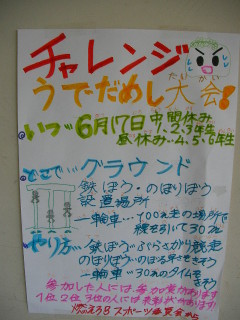 チャレンジ
うでだめし大会!
たいかい
いつ…6月17日中間休み
1.2.3年生
昼休み…4.5.6年生
どこで…グラウンド
鉄ぼう・のぼりぼう
設置場所
一輪車…100m走の場所で
やり方…鉄ぼう…ぶらさがり競走
のぼりぼう…のぼる早さをきそう
一輪車…30mのタイムを
きそう
参加した人には、
1位2位3位の人には
スポーツ委員会